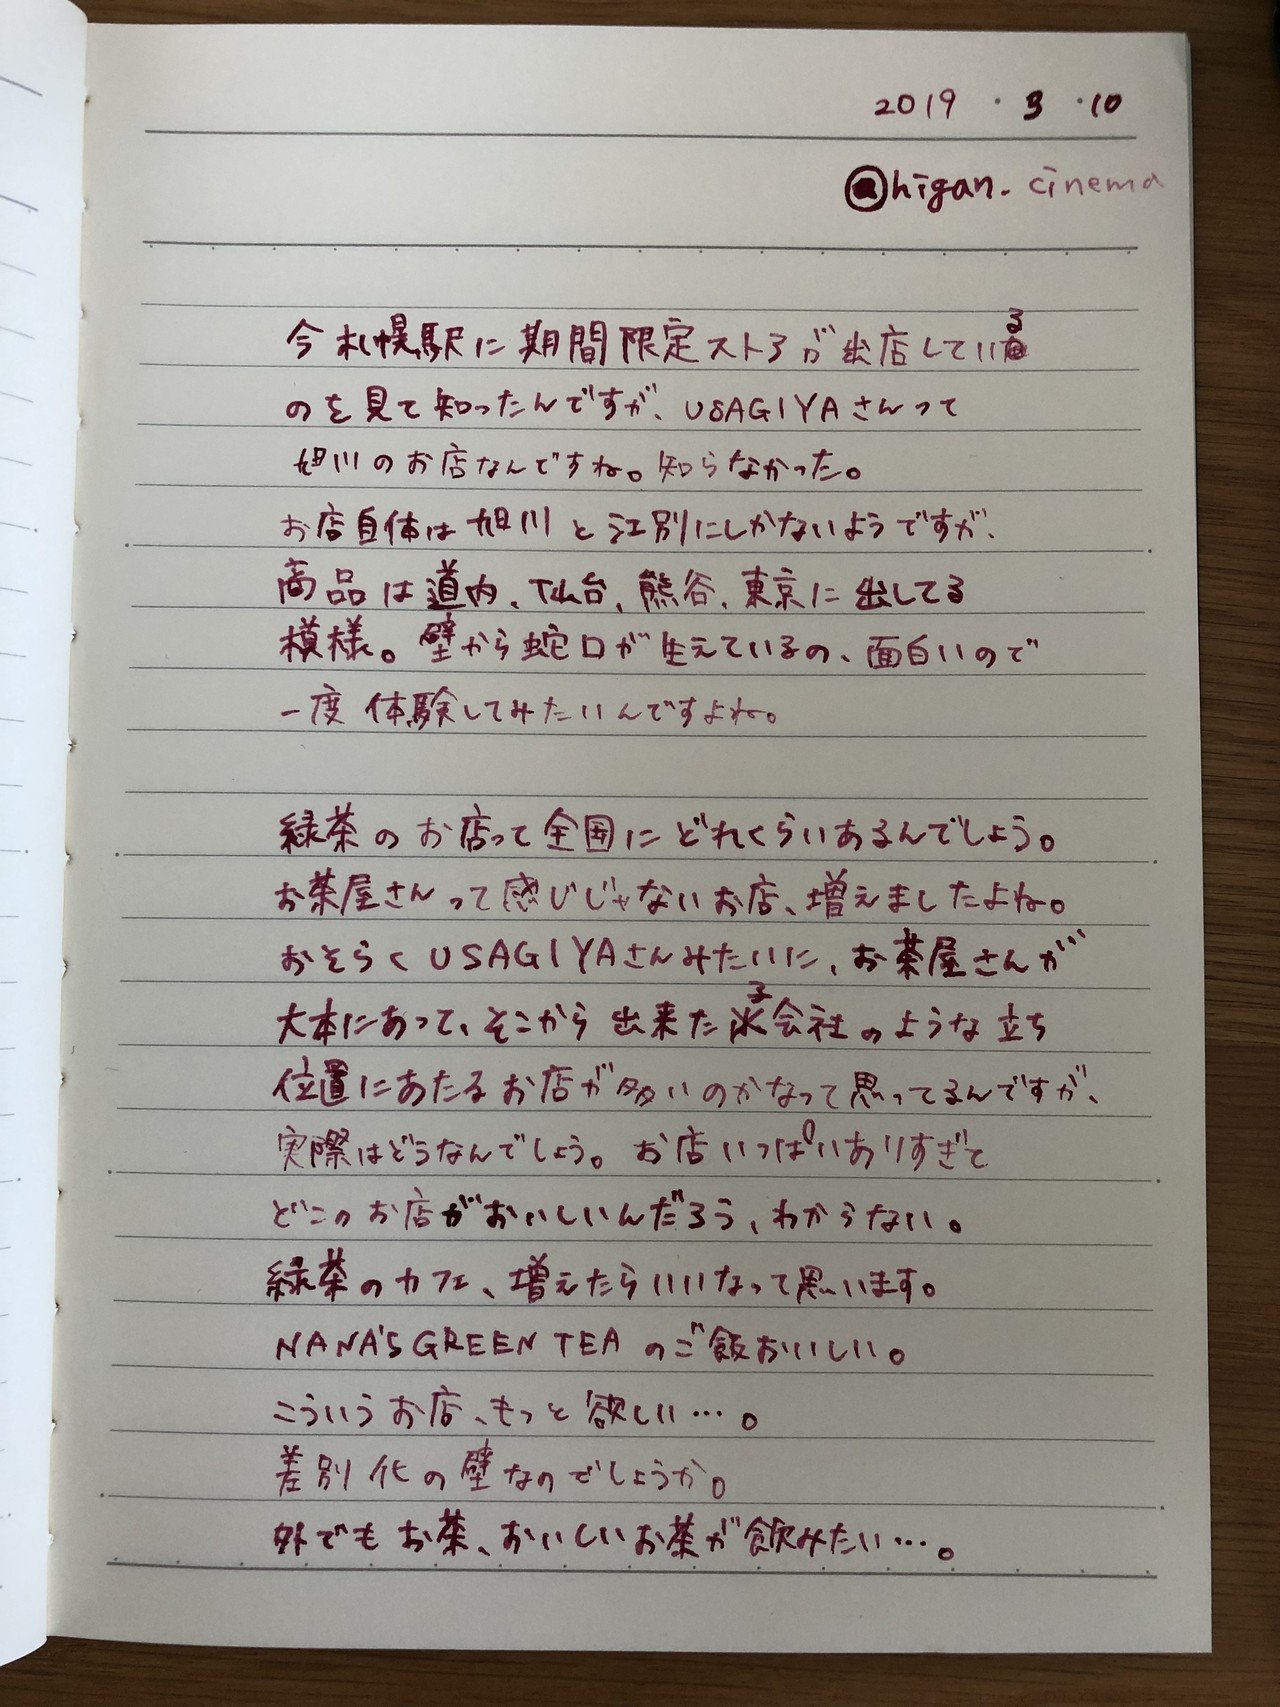 2019・3・10
@higan.cinema
今札幌駅に期間限定ストアが出店している
のを見て知ったんですが、USAGIYAさんって
旭川のお店なんですね。知らなかった。
お店自体は旭川と江別にしかないようですが、
商品は道内、仙台、熊谷、東京に出してる
模様。壁から蛇口が生えているの、面白いので
一度体験してみたいんですよね。
緑茶のお店って全国にどれくらいあるんでしょう。
お茶屋さんって感じじゃないお店、増えましたよね。
おそらくUSAGIYAさんみたいに、お茶屋さんが
大本にあって、そこから出来た子会社のような立ち
位置にあたるお店が多いのかなって思ってるんですが、
実際はどうなんでしょう。お店いっぱいありすぎて
どこのお店がおいしいんだろう、わからない。
緑茶のカフェ、増えたらいいなって思います。
NANA'S GREEN TEAのご飯おいしい。
こういうお店、もっと欲しい…。
差別化の壁なのでしょうか。
外でもお茶、おいしいお茶が飲みたい…。